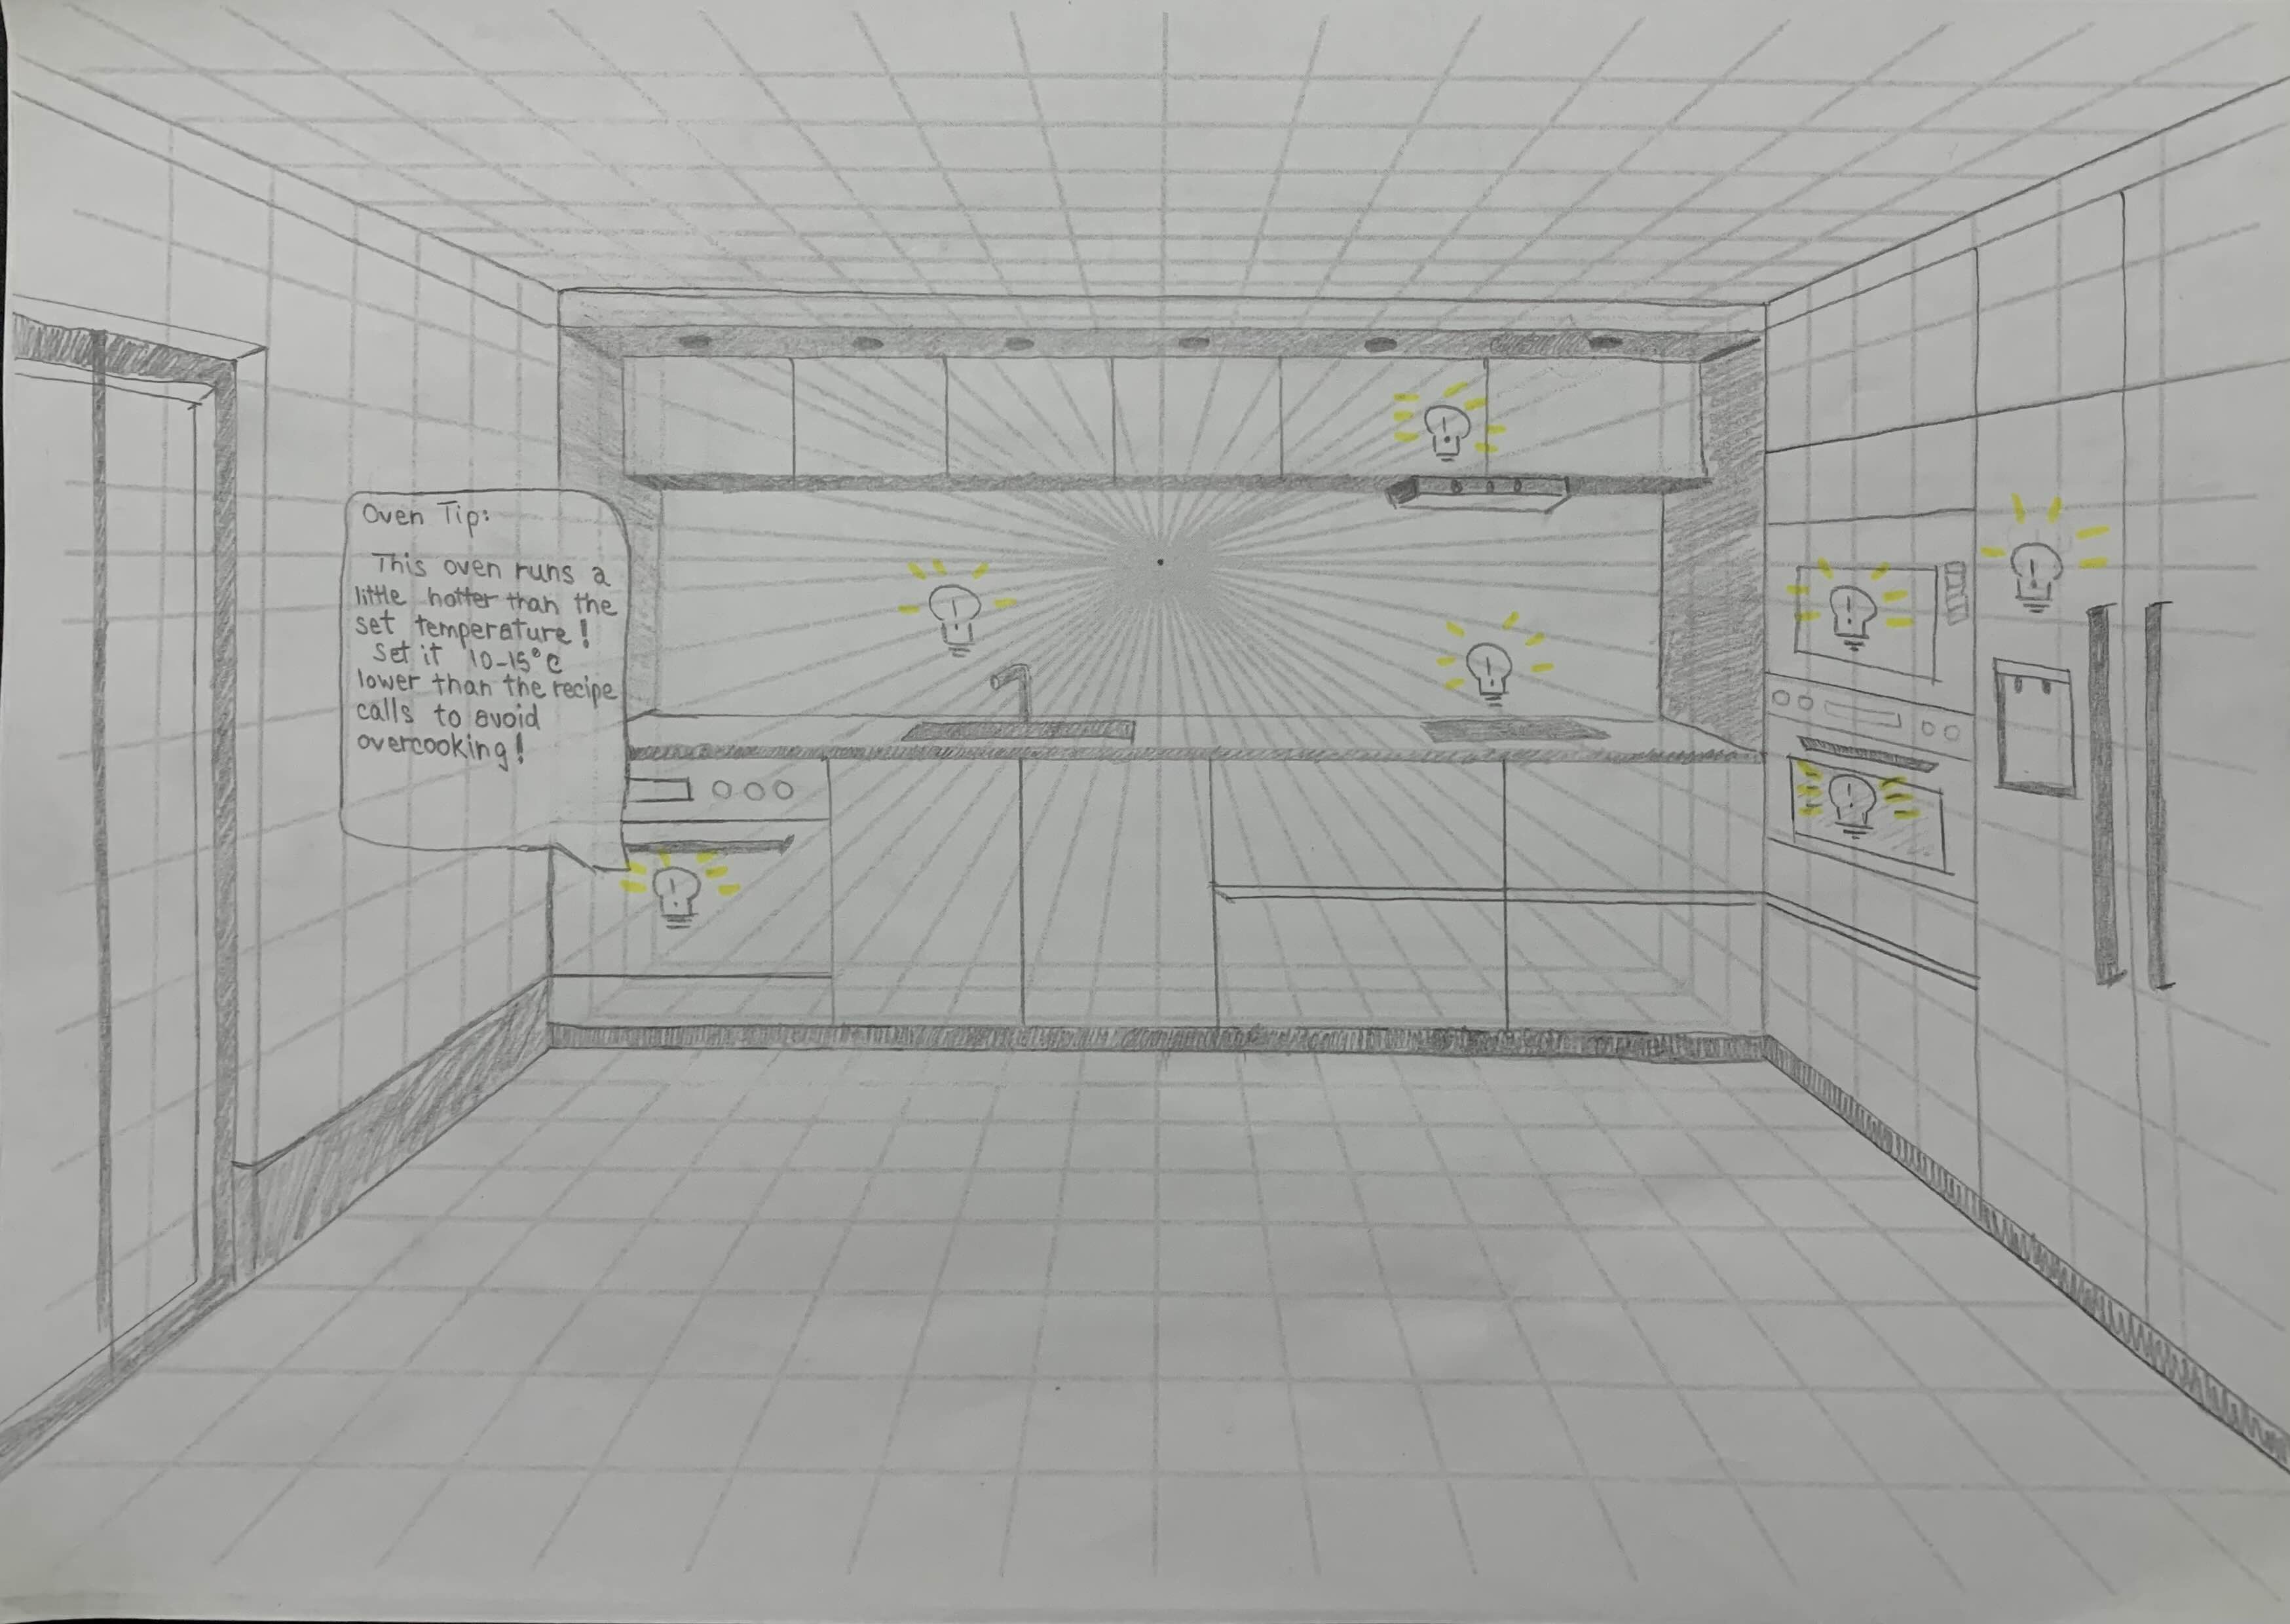 Oven Tip:
This oven runs a
little hotter than the
set temperature!
Set it 10-15°C
lower than the recipe
calls to avoid
overcooking!